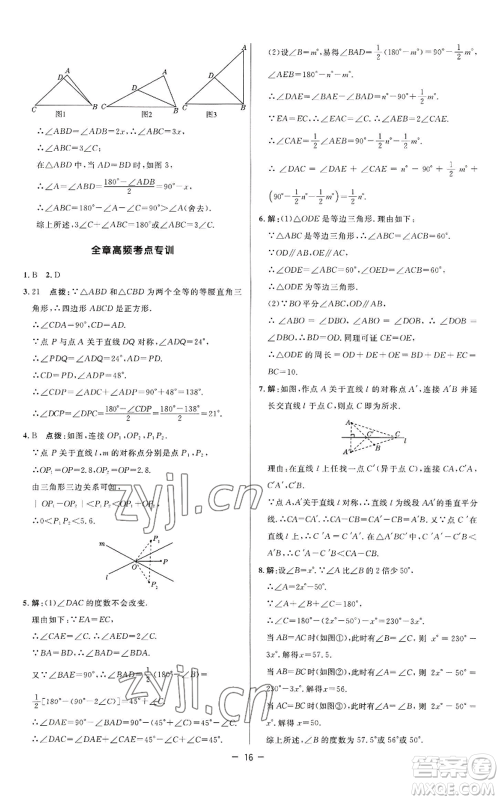 图1 图2 图3
∴∠ABD=∠ADB=2x,∴∠ABC=3x,
∴∠ABC=3∠C;
在△ABD中,当AD=BD时,如图3,
∴∠A=∠ABD=(180°-∠ADB)/2
=(180°-2x)/2=90°-x,
∴∠ABC=90°-x+x=90°=∠A(舍去).
综上所述,3∠C+∠A=180°或∠ABC=3∠C.
全章高频考点专训
1. B 2. D
3. 21 点拨:∵△ABD和△CBD为两个全等的等腰直角三
角形,∴四边形ABCD是正方形.
∴∠CDA=90°,CD=AD.
∵点P与点A关于直线DQ对称,
∴∠PDQ=∠ADQ=24°,AD=DP.
∴∠ADP=48°.
∴∠CDP=∠ADC+∠ADP=90°+48°=138°.
∴∠DCP=∠DPC=(180°-∠CDP)/2=(180°-138°)/2=21°.
4. B 点拨:如图,连接OP₁,OP₂,P₁P₂.
∵点P关于直线l,m的对称点分别是点P₁,P₂,
∴OP₁=OP=2.8,OP₂=OP=2.8.
由三角形三边关系可知,
|OP₁-OP₂|<P₁P₂<OP₁+OP₂,
∴0<P₁P₂<5.6.
5. 解:(1)∠DAC的度数不会改变.
理由如下:∵EA=EC,
∴∠CAE=∠C.∴∠AED=2∠C.
∵BA=BD,
∴∠BAD=∠BDA.
又∵∠BAE=90°,∴∠BAD=1/2(180°-∠B)=
1/2[180°-(90°-2∠C)]=45°+∠C.
∴∠DAE=90°-∠BAD=90°-(45°+∠C)=45°-∠C.
∴∠DAC=∠DAE+∠CAE=45°-∠C+∠C=45°.
(2)设∠B=m°,易得∠BAD=1/2(180°-m°)=90°-1/2m°,
∠AEB=180°-n°-m°.
∴∠DAE=n°-∠BAD=n°-90°+1/2m°.
∵EA=EC,∴∠C=∠CAE,∴∠AEB=2∠CAE.
∴∠CAE=1/2∠AEB=90°-1/2n°-1/2m°.
∴∠DAC=∠DAE+∠CAE=n°-90°+1/2m°+
(90°-1/2n°-1/2m°)=1/2n°.
6. 解:(1)△ODE是等边三角形.理由如下:
∵△ABC是等边三角形,∴∠ABC=∠ACB=60°.
∵OD∥AB,OE∥AC,
∴∠ODE=∠ABC=60°,∠OED=∠ACB=60°.
∴△ODE是等边三角形.
(2)∵BO平分∠ABC,∴∠ABO=∠DBO.
∵OD∥AB,∴∠ABO=∠BOD.∴∠DBO=∠BOD.
∴BD=OD.同理可证CE=OE.
∴△ODE的周长=OD+DE+OE=BD+DE+CE=
BC=10.
7. 解:如图,作点A关于直线l的对称点A′,连接A′B并延
长交直线l于点C,点C即为所求.
理由:在直线l上任找一点C′(异于点C),连接CA,
C′A,C′A′,C′B.
∵点A,A′关于直线l对称,∴直线l为线段AA′的垂直平
分线.∴CA=CA′.∴CA-CB=CA′-CB=A′B.又∵点C′在
直线l上,∴C′A=C′A′.在△A′BC′中,C′A-C′B=
C′A′-C′B<A′B,∴C′A-C′B<CA-CB.
8. 解:设∠B=x°.∵∠A比∠B的2倍少50°,
∴∠A=2x°-50°.
∵∠A+∠B+∠C=180°,
∴∠C=180°-(2x°-50°)-x°=230°-3x°.
当AB=AC时(如图①),此时有∠B=∠C,则x°=230°-
3x°,解得x=57.5.
当CA=BC时(如图②),此时有∠A=∠B,则2x°-50°=
x°,解得x=50.
当AB=BC时(如图③),此时有∠A=∠C,则2x°-50°=
230°-3x°,解得x=56.
综上所述,∠B的度数为57.5°或50°或56°.
16
zyjl.cn